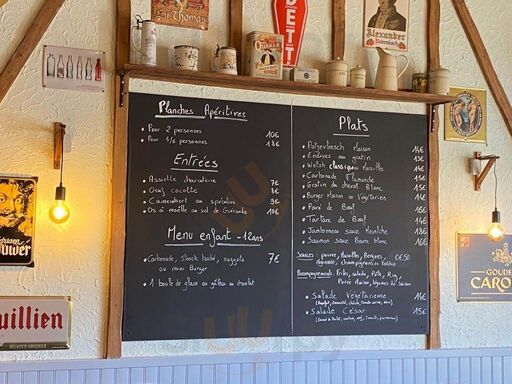 St Thomas
DETT!
Alexander
Rodenbach
Planches Apéritives
• Pour 2 personnes 10€
• Pour 4/6 personnes 18€
Entrées
• Assiette charcuterie 7€
• Oeuf cocotte
• Camembert au spéculoos 9€
• Os à moelle au sel de Guérande 10€
Menu enfant -12ans
• Carbonade, Steack haché, nuggets 7€
ou mini Burger
• 1 boule de glace ou gâteau au chocolat
Plats
• Potjevleesch Maison 14€
• Endives au gratin 13€
• Welsh classique ou Maroilles 14€
• Carbonade Flamande 15€
• Gratin du cheval Blanc 15€
• Burger Maison ou Végétarien
• Pavé de Boeuf
• Tartare de Boeuf 14€
• Jambonneau sauce
• Saumon sauce Beurre blanc 16€
Sauces: poivre, Maroilles, Bergues, 0€50
champignons ou Ketchup
Accompagnements: Frites, salade, Pâte, Riz,
Purée Maison, légumes de Saison
• Salade Végétarienne 14€
• Salade César 15€
uwer
uillien
GOUDE
CARO